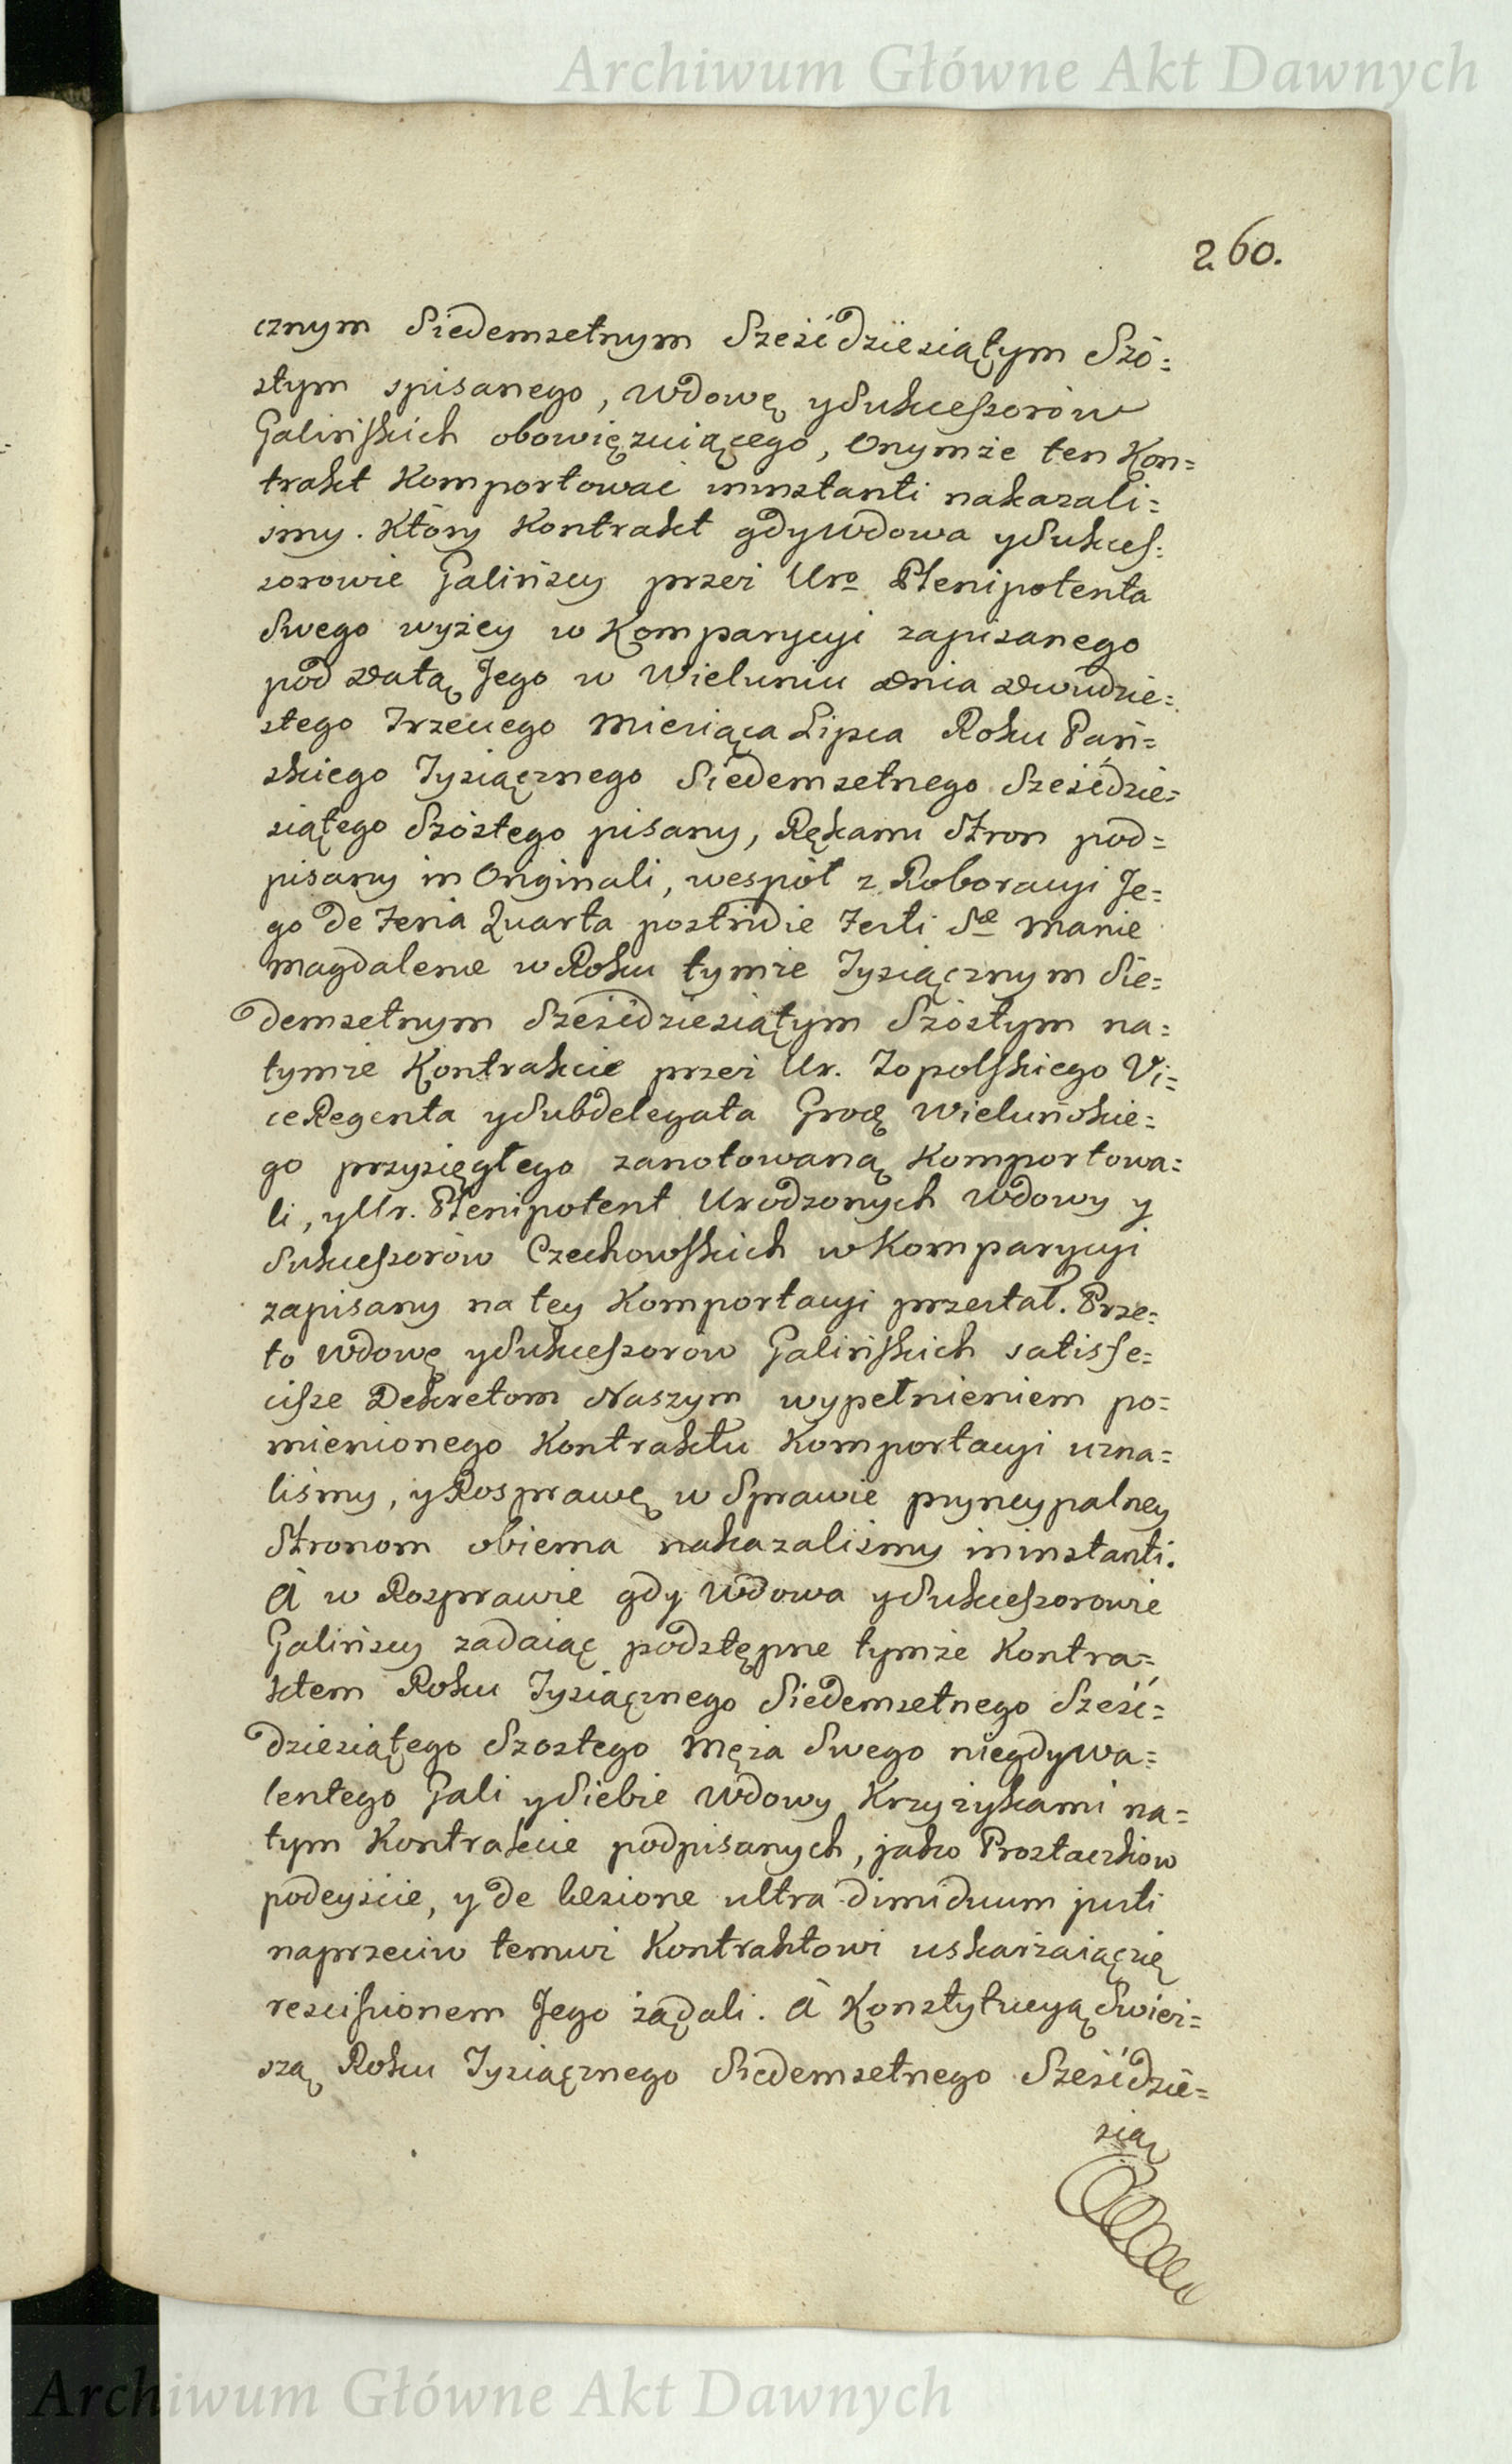 Archiwum Główne Akt Dawnych
260.
cznym Siedemsetnym Sześćdziesiątym Szó=
stym spisanego, Wdowę y Sukcessorów
Galińskich obowięzuiącego, Onymże ten Kon=
trakt Komportować ininstanti nakazali=
śmy. Który Kontrakt gdy Wdowa y Sukces=
sorowie Galińscy przez Uro Plenipotenta
Swego wyżey w Komparycyi zapisanego
pod Datą Jego w Wieluniu Dnia Dwudzie=
stego Trzeciego Miesiąca Lipca Roku Pań=
skiego Tysiącznego Siedemsetnego Sześćdzie=
siątego Szóstego pisany, Rękami Stron pod=
pisany in Originali, wespół z Roboracyi Je=
go De Feria Quarta postridie Festi Sae Mariæ
Magdalenæ w Roku tymże Tysiącznym Sie=
demsetnym Sześćdziesiątym Szóstym na=
tymże Kontrakcie przez Ur. Zopolskiego Vi=
ceRegenta y Subdelegata Grodz Wieluńskie=
go przysięgłego zanotowaną Komportowa=
li, y Ur. Plenipotent Urodzonych Wdowy y
Sukcessorów Czechowskich w Komparycyi
zapisany na tey Komportacyi przestał. Prze=
to Wdowę y Sukcessorow Galińskich satisfe=
cisse Dekretom Naszym wypełnieniem po=
mienionego Kontraktu Komportacyi uzna=
liśmy, y Rosprawę w Sprawie pryncypalney
Stronom obiema nakazaliśmy ininstanti.
A w Rozprawie gdy Wdowa y Sukcessorowie
Galińscy zadaiąc podstępne tymże Kontra=
ktem Roku Tysiącznego Siedemsetnego Sześć=
dziesiątego Szostego Męża Swego niegdy Wa=
lentego Gali y Siebie Wdowy Krzyżykami na=
tym Kontrakcie podpisanych, jako Prostaczków
podeyście, y de læsione ultra dimidium justi
naprzeciw temuż Kontraktowi uskarżaiącsię
rescissionem Jego żądali. A Konstytucyą Śwież=
szą Roku Tysiącznego Siedemsetnego Sześćdzie=
sią
Archiwum Główne Akt Dawnych